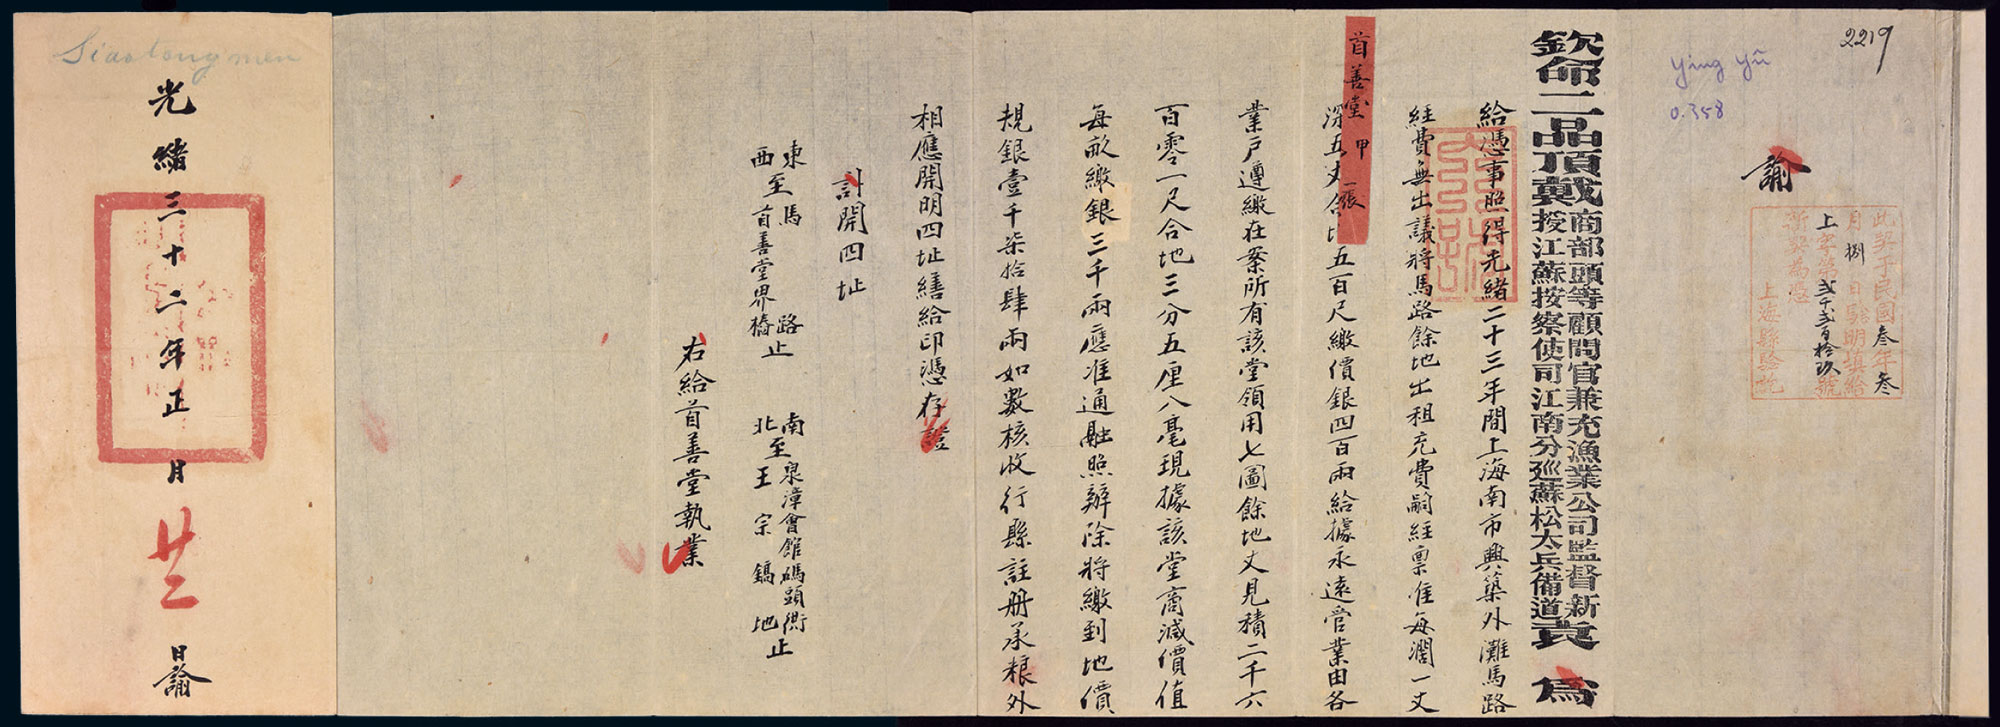 2219
ying yü
0.358
諭
此契于民國叁年叁
月捌日驗明填給
上字第弍千弍百拾玖號
新契為憑
上海縣驗訖
欽命二品頂戴商部頭等顧問官兼充漁業公司監督新
授江蘇按察使司江南分巡蘇松太兵備道袁 為
給憑事照得光緒二十三年間上海南市興築外灘馬路
經費無出議將馬路餘地出租充費嗣經票准每濶一丈
首善堂 甲 一張
深五丈 五百尺繳價銀四百兩給據永遠管業由各
業戶遵繳在案所有該堂領用七圖餘地丈見積二千六
百零一尺合地三分五厘八毫現據該堂商減價值
每畝繳銀三千兩應准通融照辦除將繳到地價
規銀壹千柒拾肆兩如數核收行縣註册承糧外
相應開明四址繕給印憑存證
計開四址
東 馬 路
西至首善堂界樁止
南泉漳會館碼頭衖
北至王宗鎬地止
右給首善堂執業
Siaotongmen
光緒三十二年正月廿二日諭